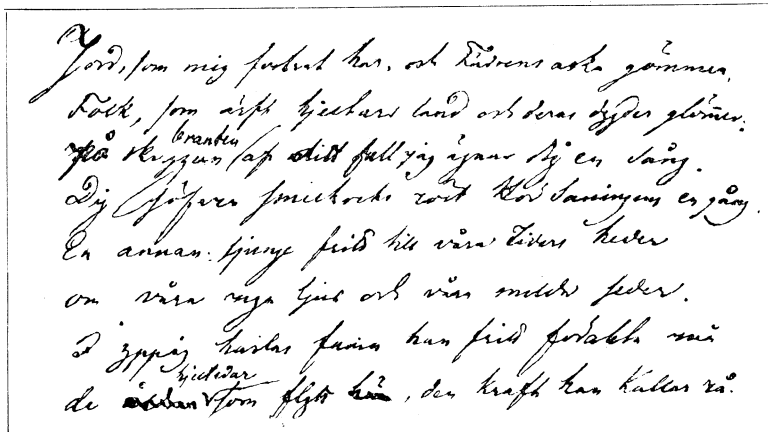 Jord, som mig fostrat har, och Fädrens aska gömmer,
Folk, som ärft hjeltars land och deras dygder glömmer:
branten
På skuggan af ditt fall jag ägnar dig en sång.
Dig söfver smickrets röst hör Sanningens en gång.
En annan sjunge fritt till våra Tiders heder
om våra nya ljus och våra milda seder.
I yppig hvilas famn han fritt förakta må
hjeltedar
de som flytt, den kraft han kallar rå.